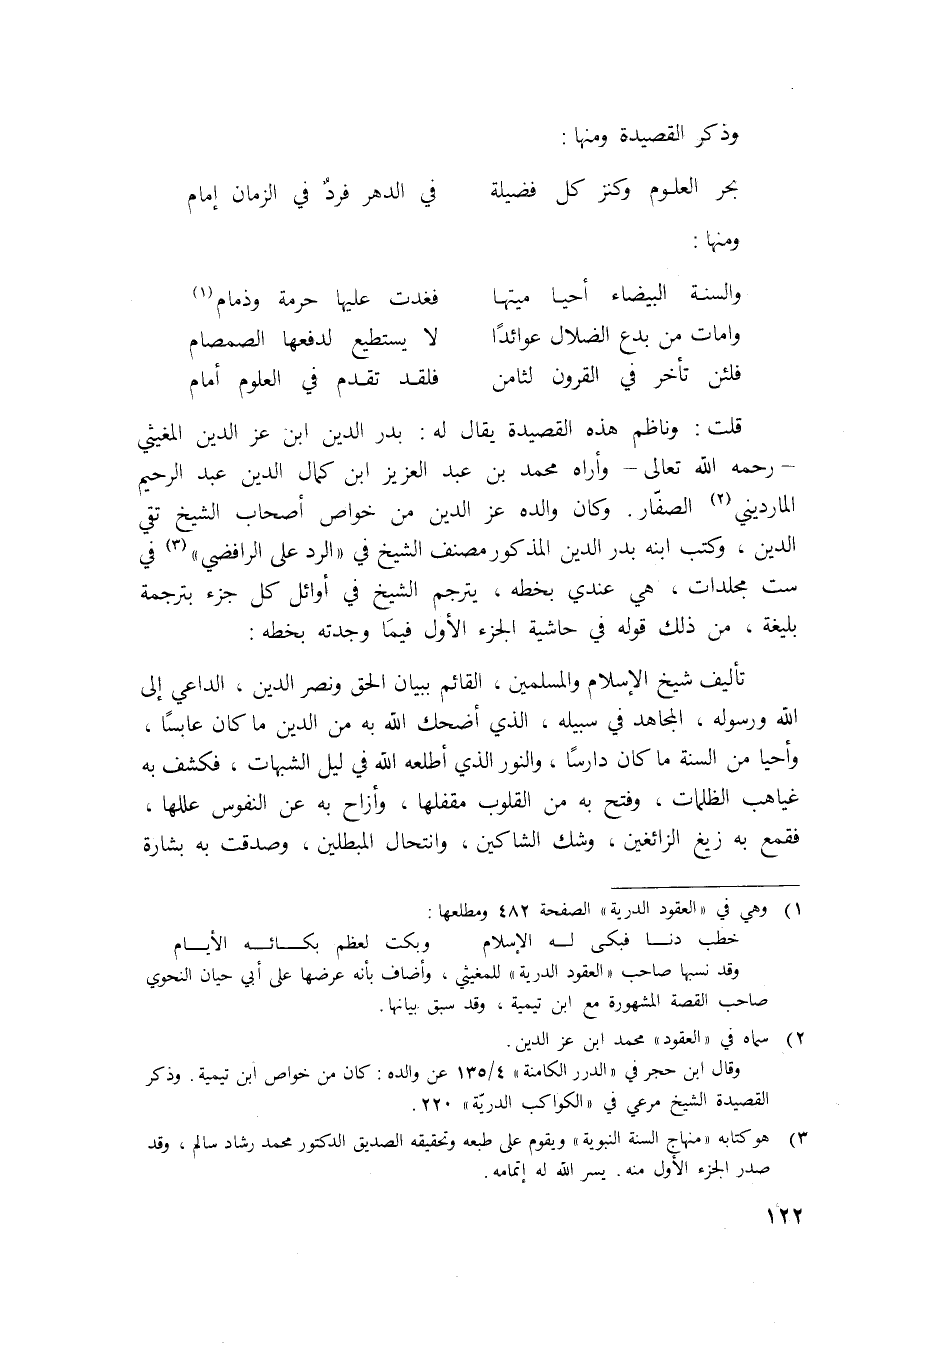 وذكر القصيدة ومنها :
بحر العلوم وكنز كل فضيلة في الدهر فردٌ في الزمان إمام
ومنها :
والسنة البيضاء أحيا ميتها فغدت عليها حرمة وذمام (١)
وامات من بدع الضلال عوائدًا لا يستطيع لدفعها الصمصام
فلئن تأخر في القرون لثامن فلقد تقدم في العلوم أمام
قلت : وناظم هذه القصيدة يقال له : بدر الدين ابن عز الدين المغيثي
– رحمه الله تعالى – وأراه محمد بن عبد العزيز ابن كمال الدين عبد الرحيم
المارديني (٢) الصفّار . وكان والده عز الدين من خواص أصحاب الشيخ تقي
الدين ، وكتب ابنه بدر الدين المذكور مصنف الشيخ في «الرد على الرافضي» (٣) في
ست مجلدات ، هي عندي بخطه ، يترجم الشيخ في أوائل كل جزء بترجمة
بليغة ، من ذلك قوله في حاشية الجزء الأول فيما وجدته بخطه :
تأليف شيخ الإسلام والمسلمين ، القائم ببيان الحق ونصر الدين ، الداعي إلى
الله ورسوله ، المجاهد في سبيله ، الذي أضحك الله به من الدين ما كان عابسًا ،
وأحيا من السنة ما كان دارسًا ، والنور الذي أطلعه الله في ليل الشبهات ، فكشف به
غياهب الظلمات ، وفتح به من القلوب مقفلها ، وأزاح به عن النفوس عللها ،
فقمع به زيغ الزائغين ، وشك الشاكين ، وانتحال المبطلين ، وصدقت به بشارة
١) وهي في «العقود الدرية» الصفحة ٤٨٢ ومطلعها :
خطب دنا فبكى له الإسلام وبكت لعظم بكائه الأيام
وقد نسبها صاحب «العقود الدرية» للمغيثي ، وأضاف بأنه عرضها على أبي حيان النحوي
صاحب القصة المشهورة مع ابن تيمية ، وقد سبق بيانها .
٢) سماه في «العقود» محمد ابن عز الدين .
وقال ابن حجر في «الدرر الكامنة» ١٣٥/٤ عن والده : كان من خواص ابن تيمية . وذكر
القصيدة الشيخ مرعي في «الكواكب الدريّة» ٢٢٠ .
٣) هو كتابه «منهاج السنة النبوية» ويقوم على طبعه وتحقيقه الصديق الدكتور محمد رشاد سالم ، وقد
صدر الجزء الأول منه . يسر الله له إتمامه .
١٢٢